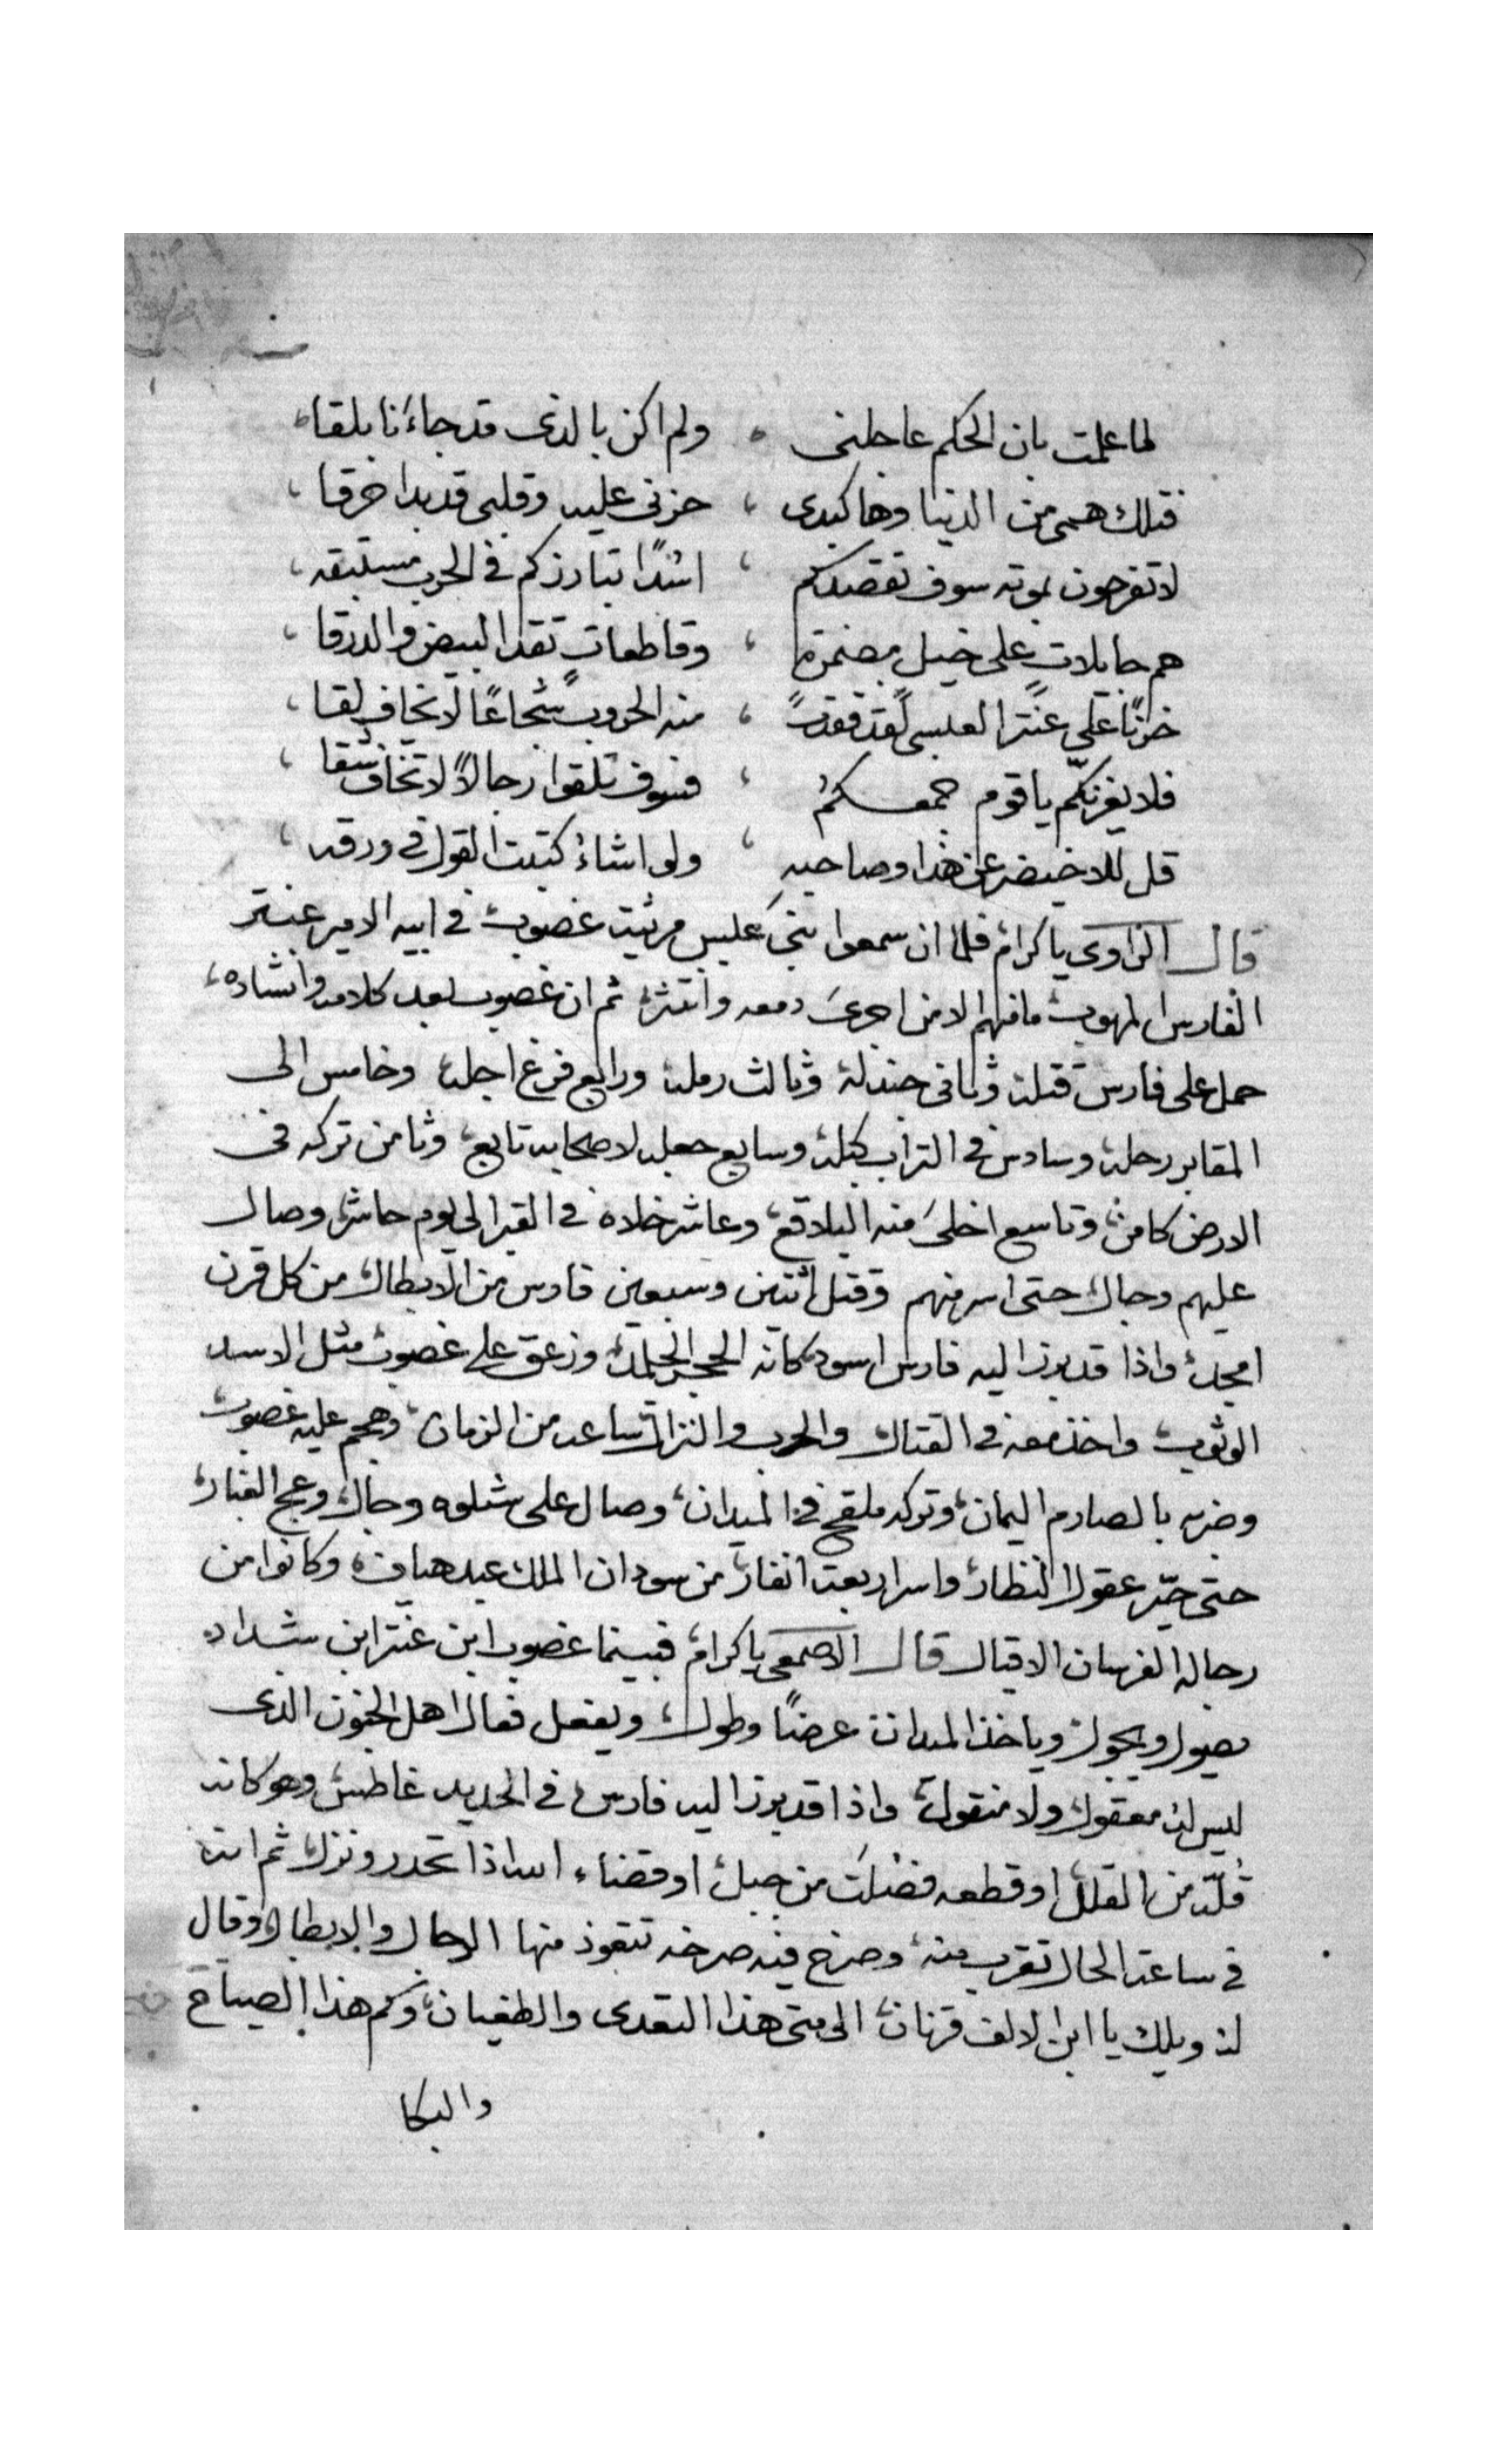 لما علمت بان الحكم عاجلنى ، ولم اكن بالذى قد جاءنا بلقا
فتلك همى من الدنيا وها كبدى ، حزنى عليه وقلبى قد بدا خرقا
لا تفرحون بموته سوف تقصدكم ، اسُدًا تبارزكم فى الحرب مستبقه
هم حاملات على خيل مضمرة ، وقاطعات تقد البيض والدرقا
حزنًا على عنترا لعبسى لقد فقدت ، منه الحروب شجاعًا لا يخاف لقا
فلا يغرنكّم يا قوم جمعكمُ ، فسوف تلقوا رجالًا لا تخاف شقا
قل للاخيضر عن هذا وصاحبه ، ولو اشاءُ كتبت القول فى ورقه
قال الراوى يا كرام فلما ان سمعوا بنى عبس مرثيت غضوب فى ابيه الامير عنتر
الفارس المهوب ما فيهم الا من اجرى دمعه وانتثر ثم ان غضوب بعد كلامه وانشاده
حمل على فارس قتله وثانى جندله وثالث رمله ورابع فرغ اجله وخامس الى
المقابر رحله وسادس فى التراب كبله وسابع جعله لاصحابه تابع وثامن تركه فى
الارض كامن وتاسع اخلى منه البلاقع وعاشر خلاه فى القبر الى يوم حاشر وصال
عليهم وجال حتى اسر منهم وقتل اثنين وسبعين فارس من الابطال من كل قرن
امجد واذا قد برز اليه فارس اسود كانه الحجر الجلمد وزعق على غضوب مثل الاسد
الوثوب واخذ معه فى القتال والحرب والنزال ساعه من الزمان وهجم عليه غضوب
وضربه بالصارم اليمان وتركه ملقح فى الميدان وصال على شلوه وجال وعج الغبار
حتى حيّر عقول النظار واسر اربعت انفار من سودان الملك عبد هياف وكانوا من
رجاله الفرسان الاقيال قال الاصمعى يا كرام فبينما غضوب ابن عنتر ابن شداد
يصول ويجول وياخذ الميدان عرضًا وطول ويفعل فعال اهل الجنون الذى
ليس له معقول ولا منقول واذا قد برز اليه فارس فى الحديد غاطس وهو كانه
قُلّه من القلل او قطعه فضلت من جبل او قضاء الله اذا تحدر ونزل ثم انه
فى ساعة الحال تقرب منه وصرخ فيه صرخه تتعوذ منها الرجال والابطال وقال
له ويلك يا ابن الالف قرنان الى متى هذا التعدى والطغيان وكم هذا الصياح
والبكا